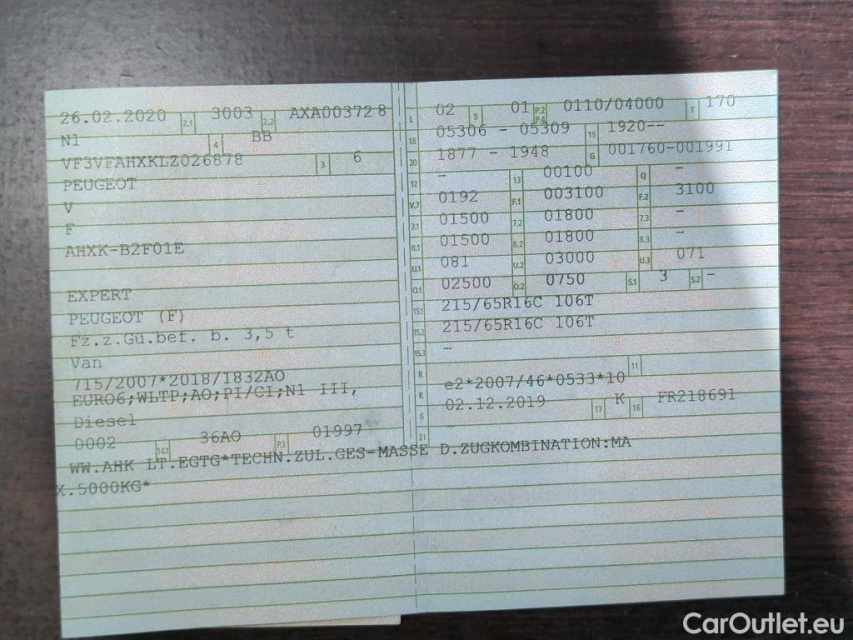 26.02.2020 2.1 3003 2.2 AXA003728
N1 4 BB
VF3VFAHXKLZ026878 3 6
PEUGEOT
V
F
AHXK-B2F01E
EXPERT
PEUGEOT (F)
Fz.z.Gü.bef. b. 3,5 t
Van
715/2007*2018/1832AO
EURO6;WLTP;AO;PI/CI;N1 III,
Diesel
0002 14.1 36AO P.1 01997
L 02 9 01 P.2 P.4 0110/04000 T 170
18 05306 - 05309 19 1920--
20 1877 - 1948 G 001760-001991
12 - 13 00100 Q -
V.7 0192 F.1 003100 F.2 3100
7.1 01500 7.2 01800 7.3 -
8.1 01500 8.2 01800 8.3 -
U.1 081 U.2 03000 U.3 071
O.1 02500 O.2 0750 S.1 3 S.2 -
15.1 215/65R16C 106T
15.2 215/65R16C 106T
15.3 -
R 11
K e2*2007/46*0533*10
6 02.12.2019 17 K 16 FR218691
21
WW.AHK LT.EGTG*TECHN.ZUL.GES-MASSE D.ZUGKOMBINATION:MA
X.5000KG*
CarOutlet.eu